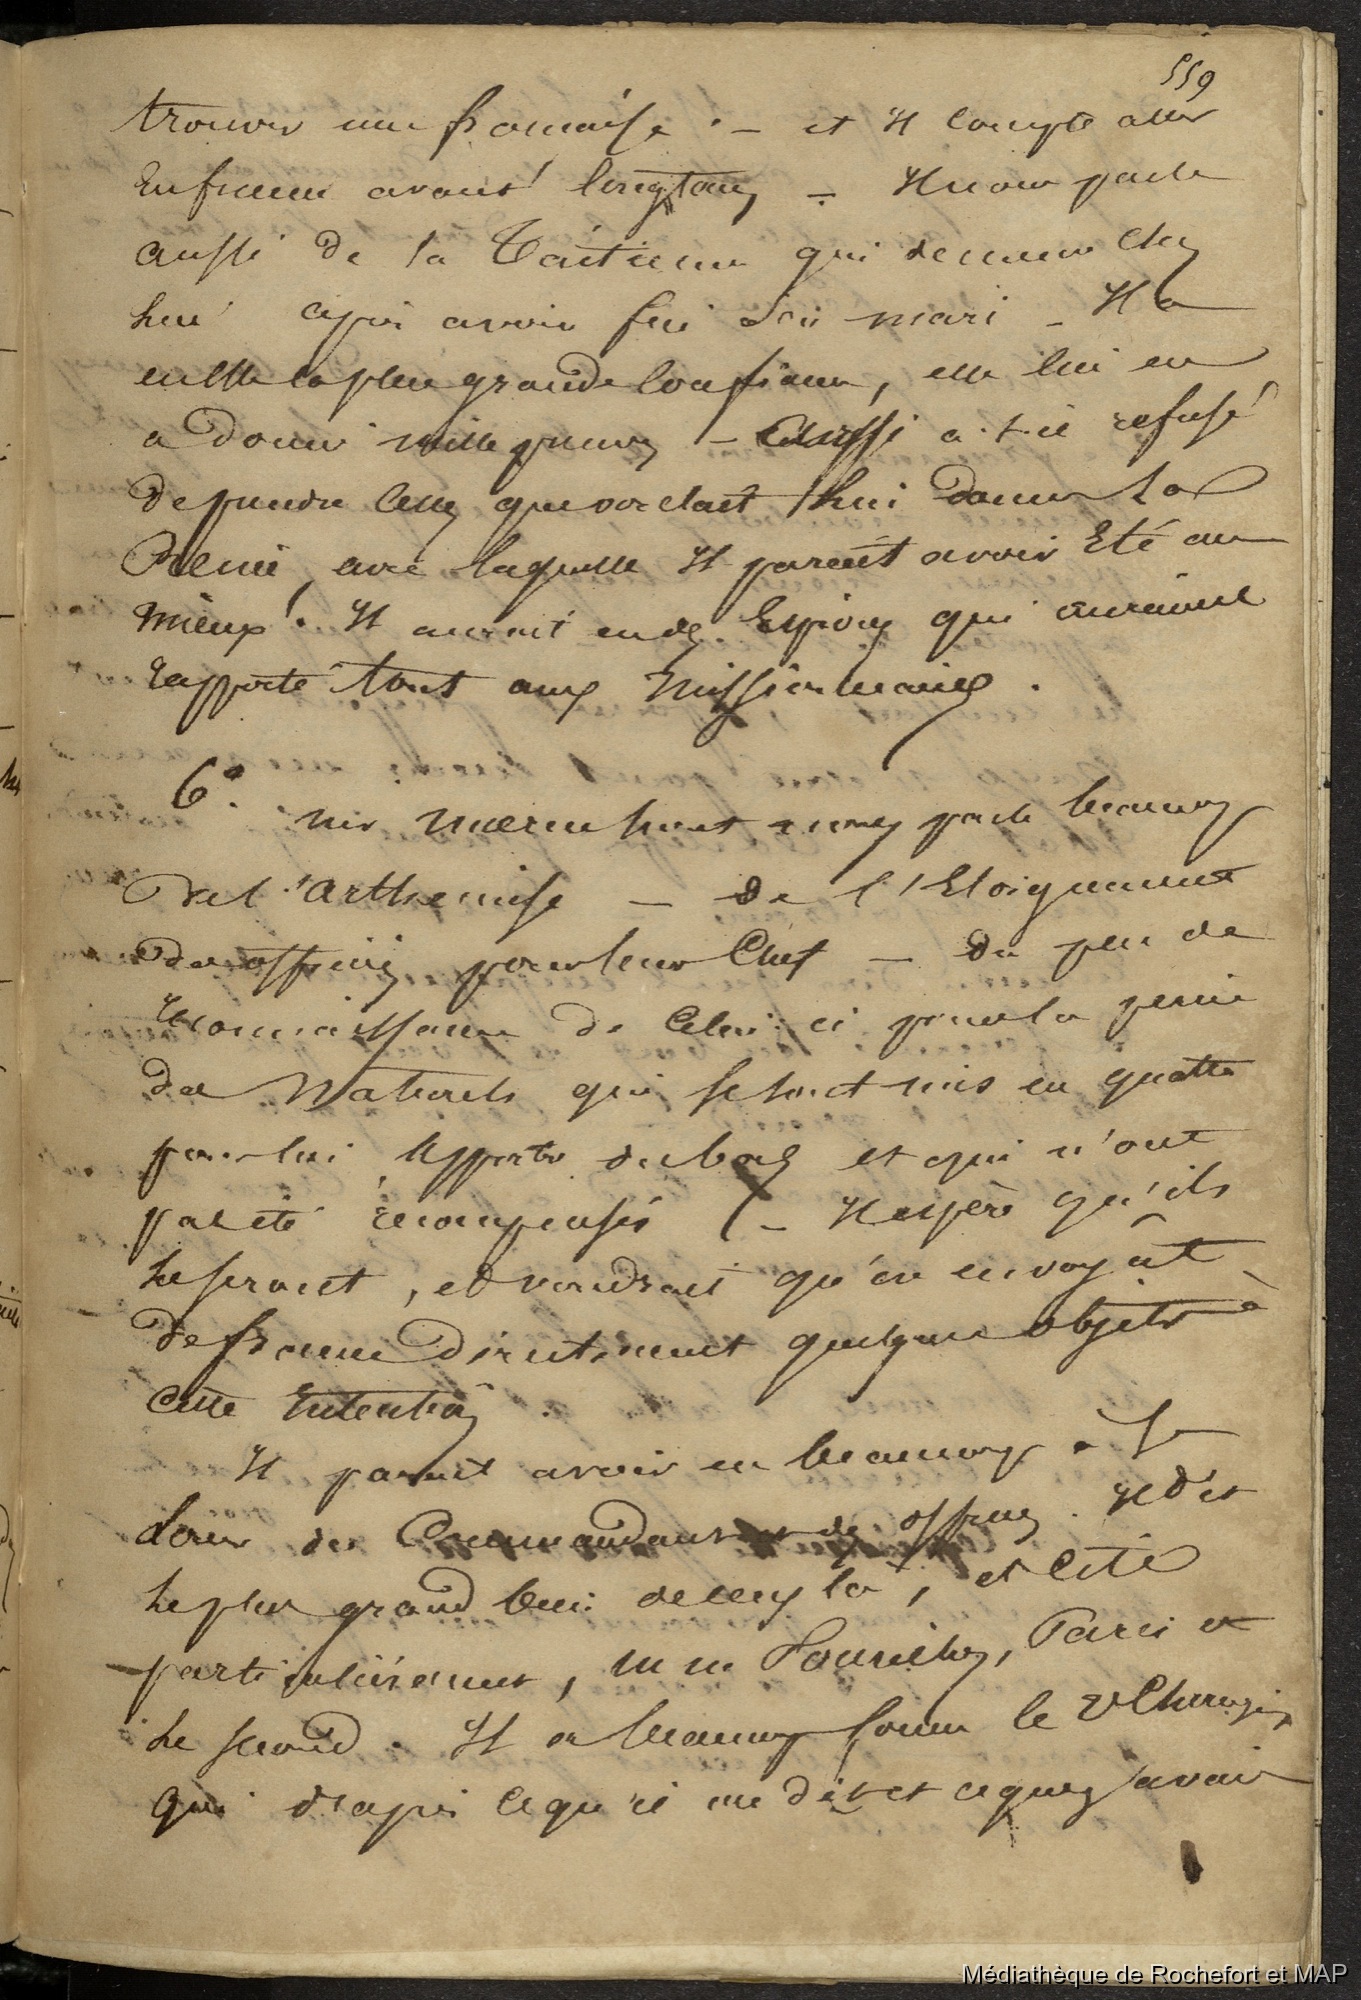 559
trouver une française. — et Il compte aller
En france avant longtems — Il nous parle
aussi de la Taïtienne qui demeure chez
lui après avoir fui son mari — Il a
en Elle la plus grande confiance, elle lui en
a donné mille preuves — Aussi a-t-il refusé
de prendre celle que voulait lui donner la
Reine, avec laquelle Il parait avoir Eté au
mieux. Il aurait eu des Espions qui auraient
rapporté tout aux Missionnaires.
6° Mr Moerenhout nous parle beaucoup
de l'Arthemise — de l'Eloignement
des officiers pour leur Chef — du peu de
reconnaissance de Celui-ci pour la peine
des Naturels qui se sont mis en quatre
pour lui apporter du bois et qui n'ont
pas été récompensés — Il espère qu'ils
le seront, et voudrait qu'on envoyat
de france directement quelques objets à
cette Intention.
Il parait avoir eu beaucoup à se
louer du Commandant et des officiers. Il dit
le plus grand bien de ceux là, et cite
particulièrement, M M Paris et
le second. Il a beaucoup connu le 2e Chirurgien
qui d'après ce qu'il me dit et ce que j'avais
Médiathèque de Rochefort et MAP